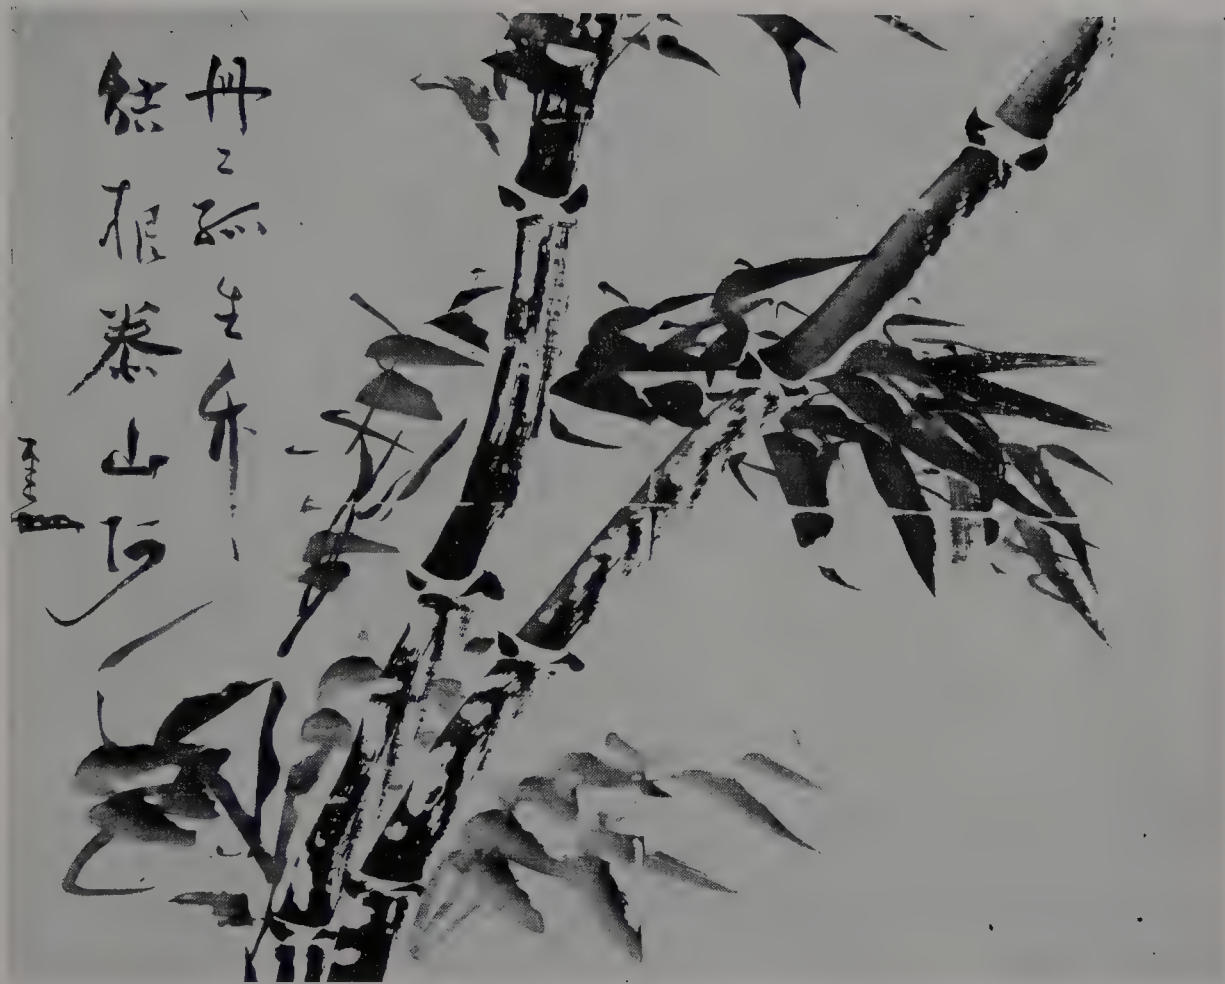 冉々孤生竹
結根泰山阿